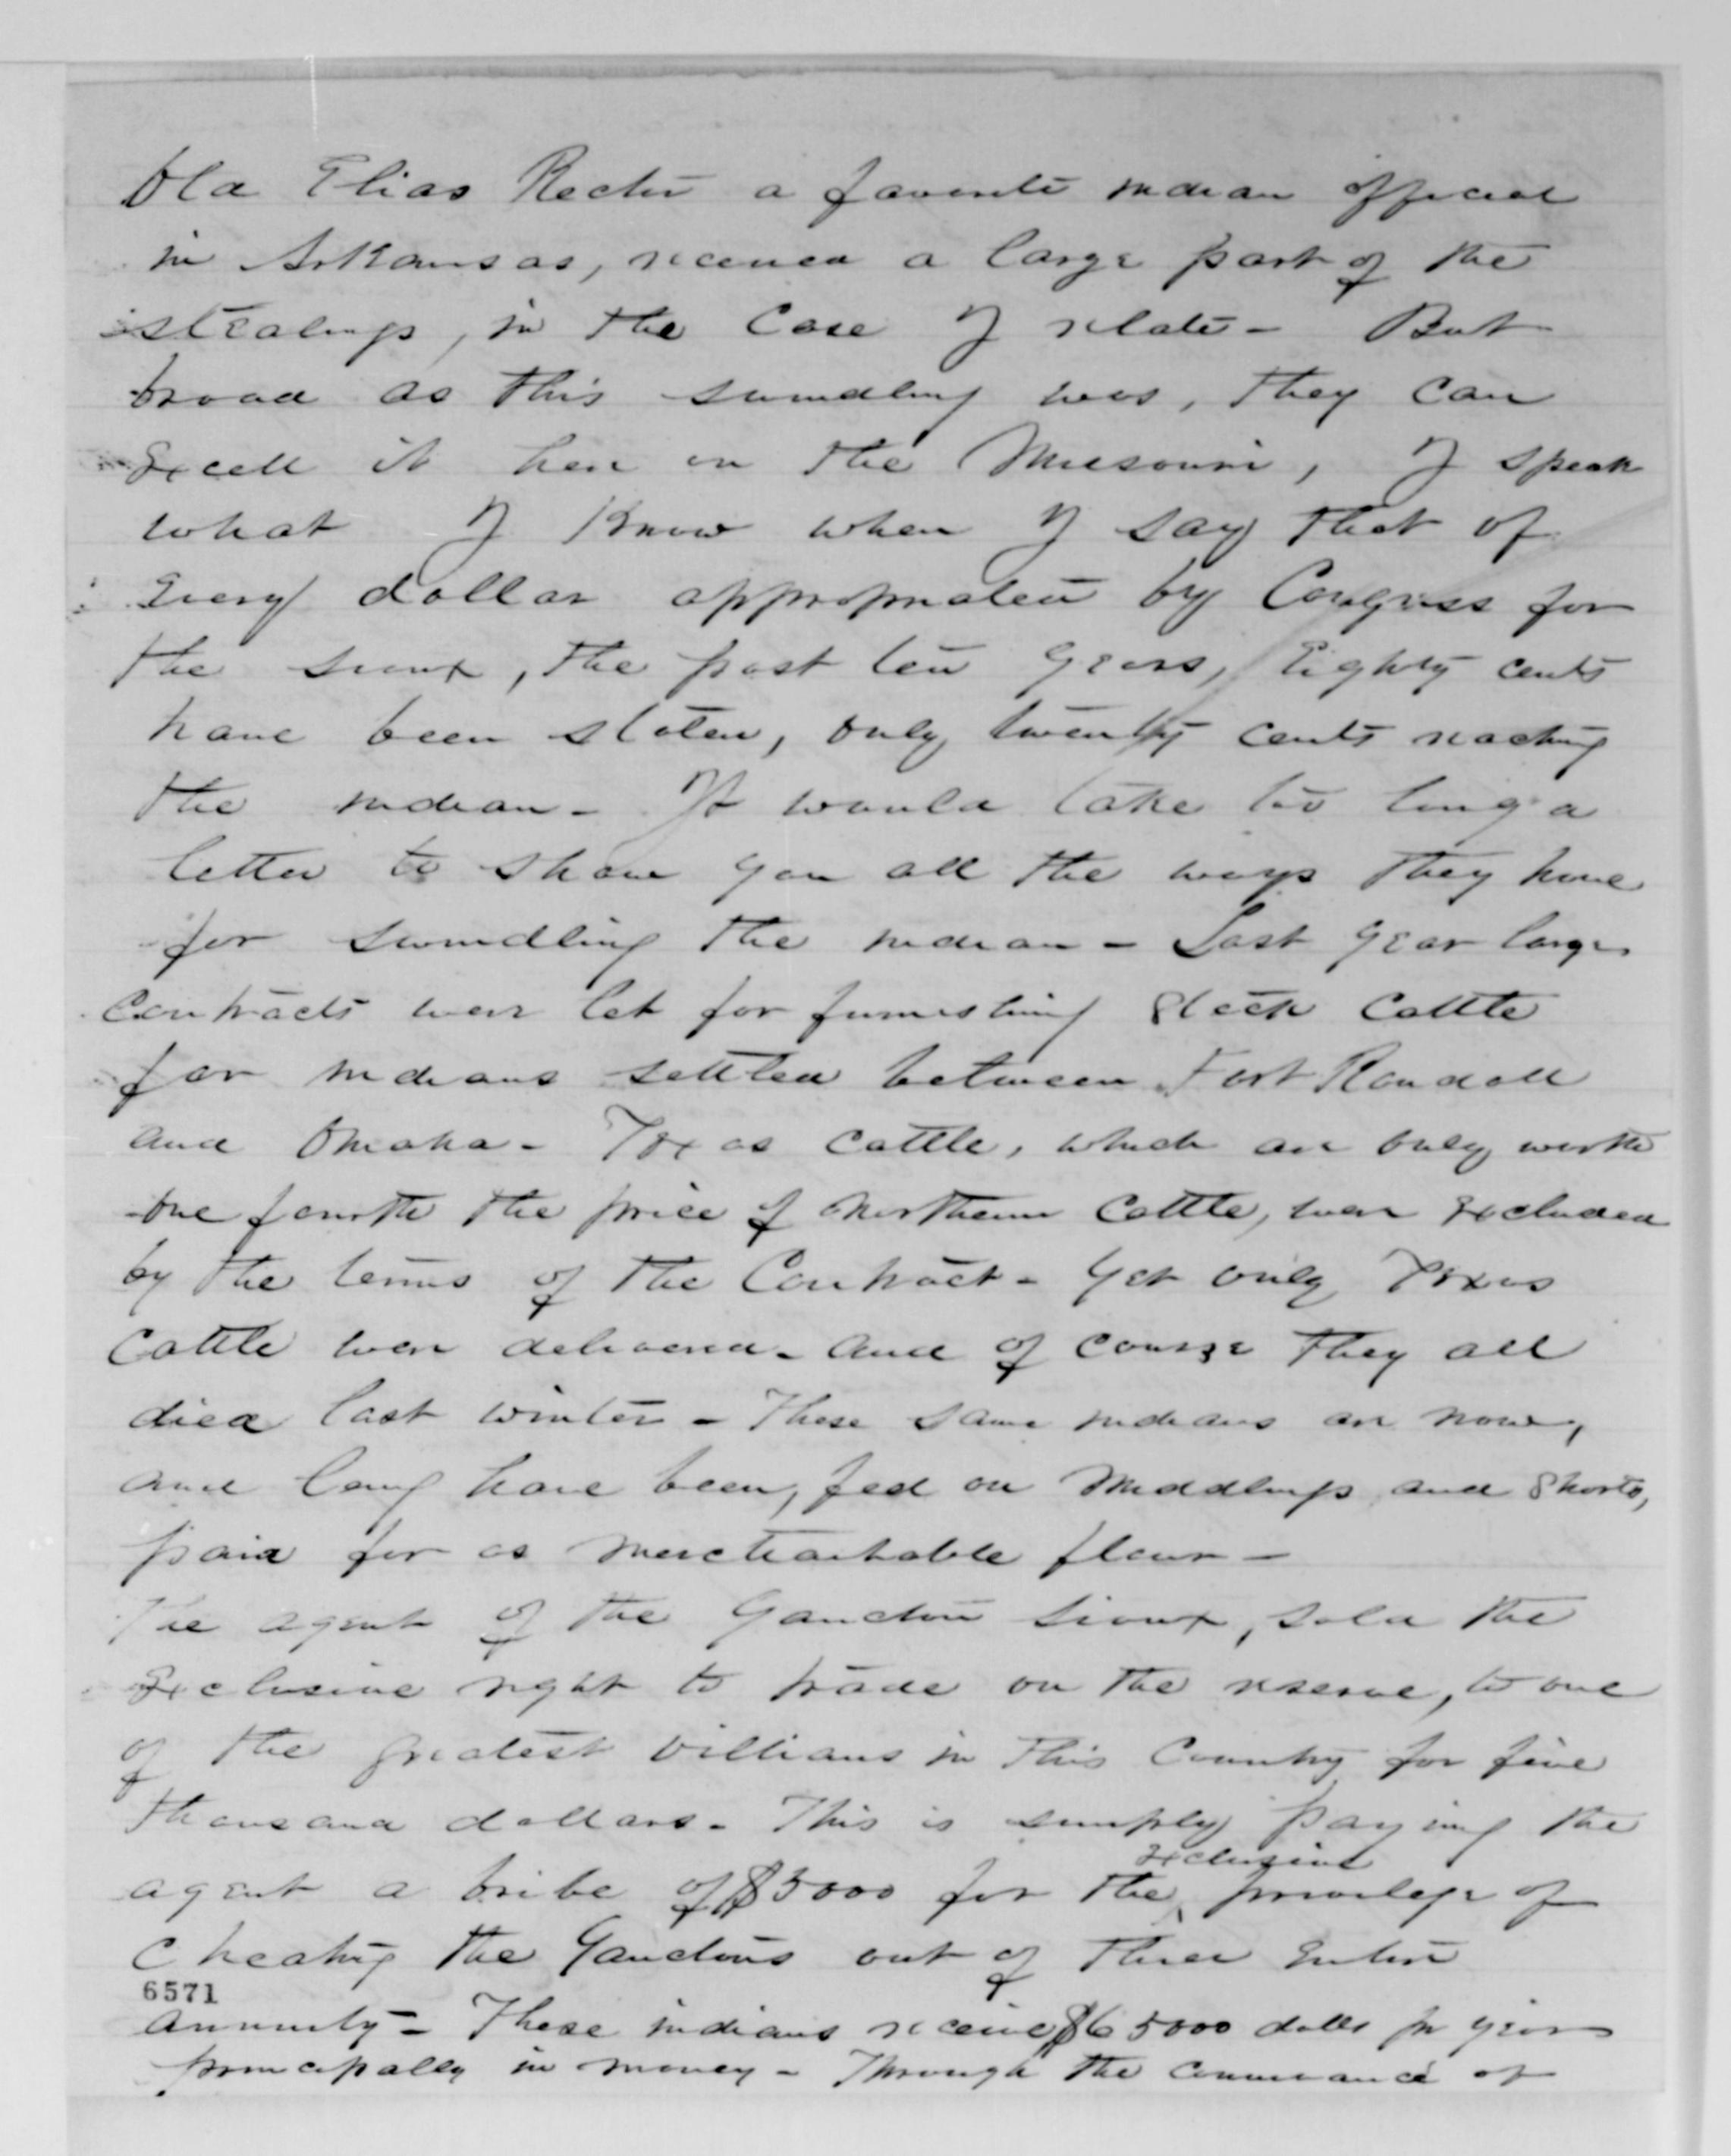 Old Elias Rector a favorite indian official
in Arkansas, received a large part of the
stealings, in the case I relate - But
broad as this swindling was, they can
Excell it here on the Missouri, I speak
what I know when I say that of
Every dollar appropriated by Congress for
the sioux, the past ten years, Eighty cents
have been stolen, only twenty cents reaching
the indian - It would take too long a
letter to show you all the ways they have
for swindling the indian - Last year large
contracts were let for furnishing Stock cattle
for indians settled between Fort Randall
and Omaha - Texas cattle, which are only worth
one fourth the price of northern cattle, were Excluded
by the terms of the Contract - Yet only Texas
cattle were delivered - and of course they all
died last winter - These same indians are now,
and long have been, fed on middlings and shorts,
paid for as merchantable flour -
The agent of the Yancton sioux, sold the
Exclusive right to trade on the reserve, to one
of the greatest villians in this Country for five
thousand dollars - This is simply paying the
Exclusive
agent a bribe of $5000 for the privilege of
cheating the Yanctons out of their Entire
6571
annuity - These indians receive $65000 dolls pr year
principally in money - Through the connivance of